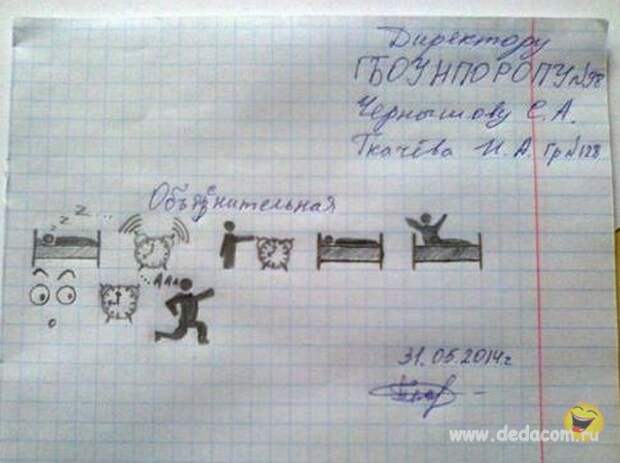 Директору
ГБОУНПОРОПУ №98
Чернышову С.А.
Ткачёва Н.А. Гр №128
Объяснительная
z z z
...ААА
31.05.2014г
www.dedacom.ru